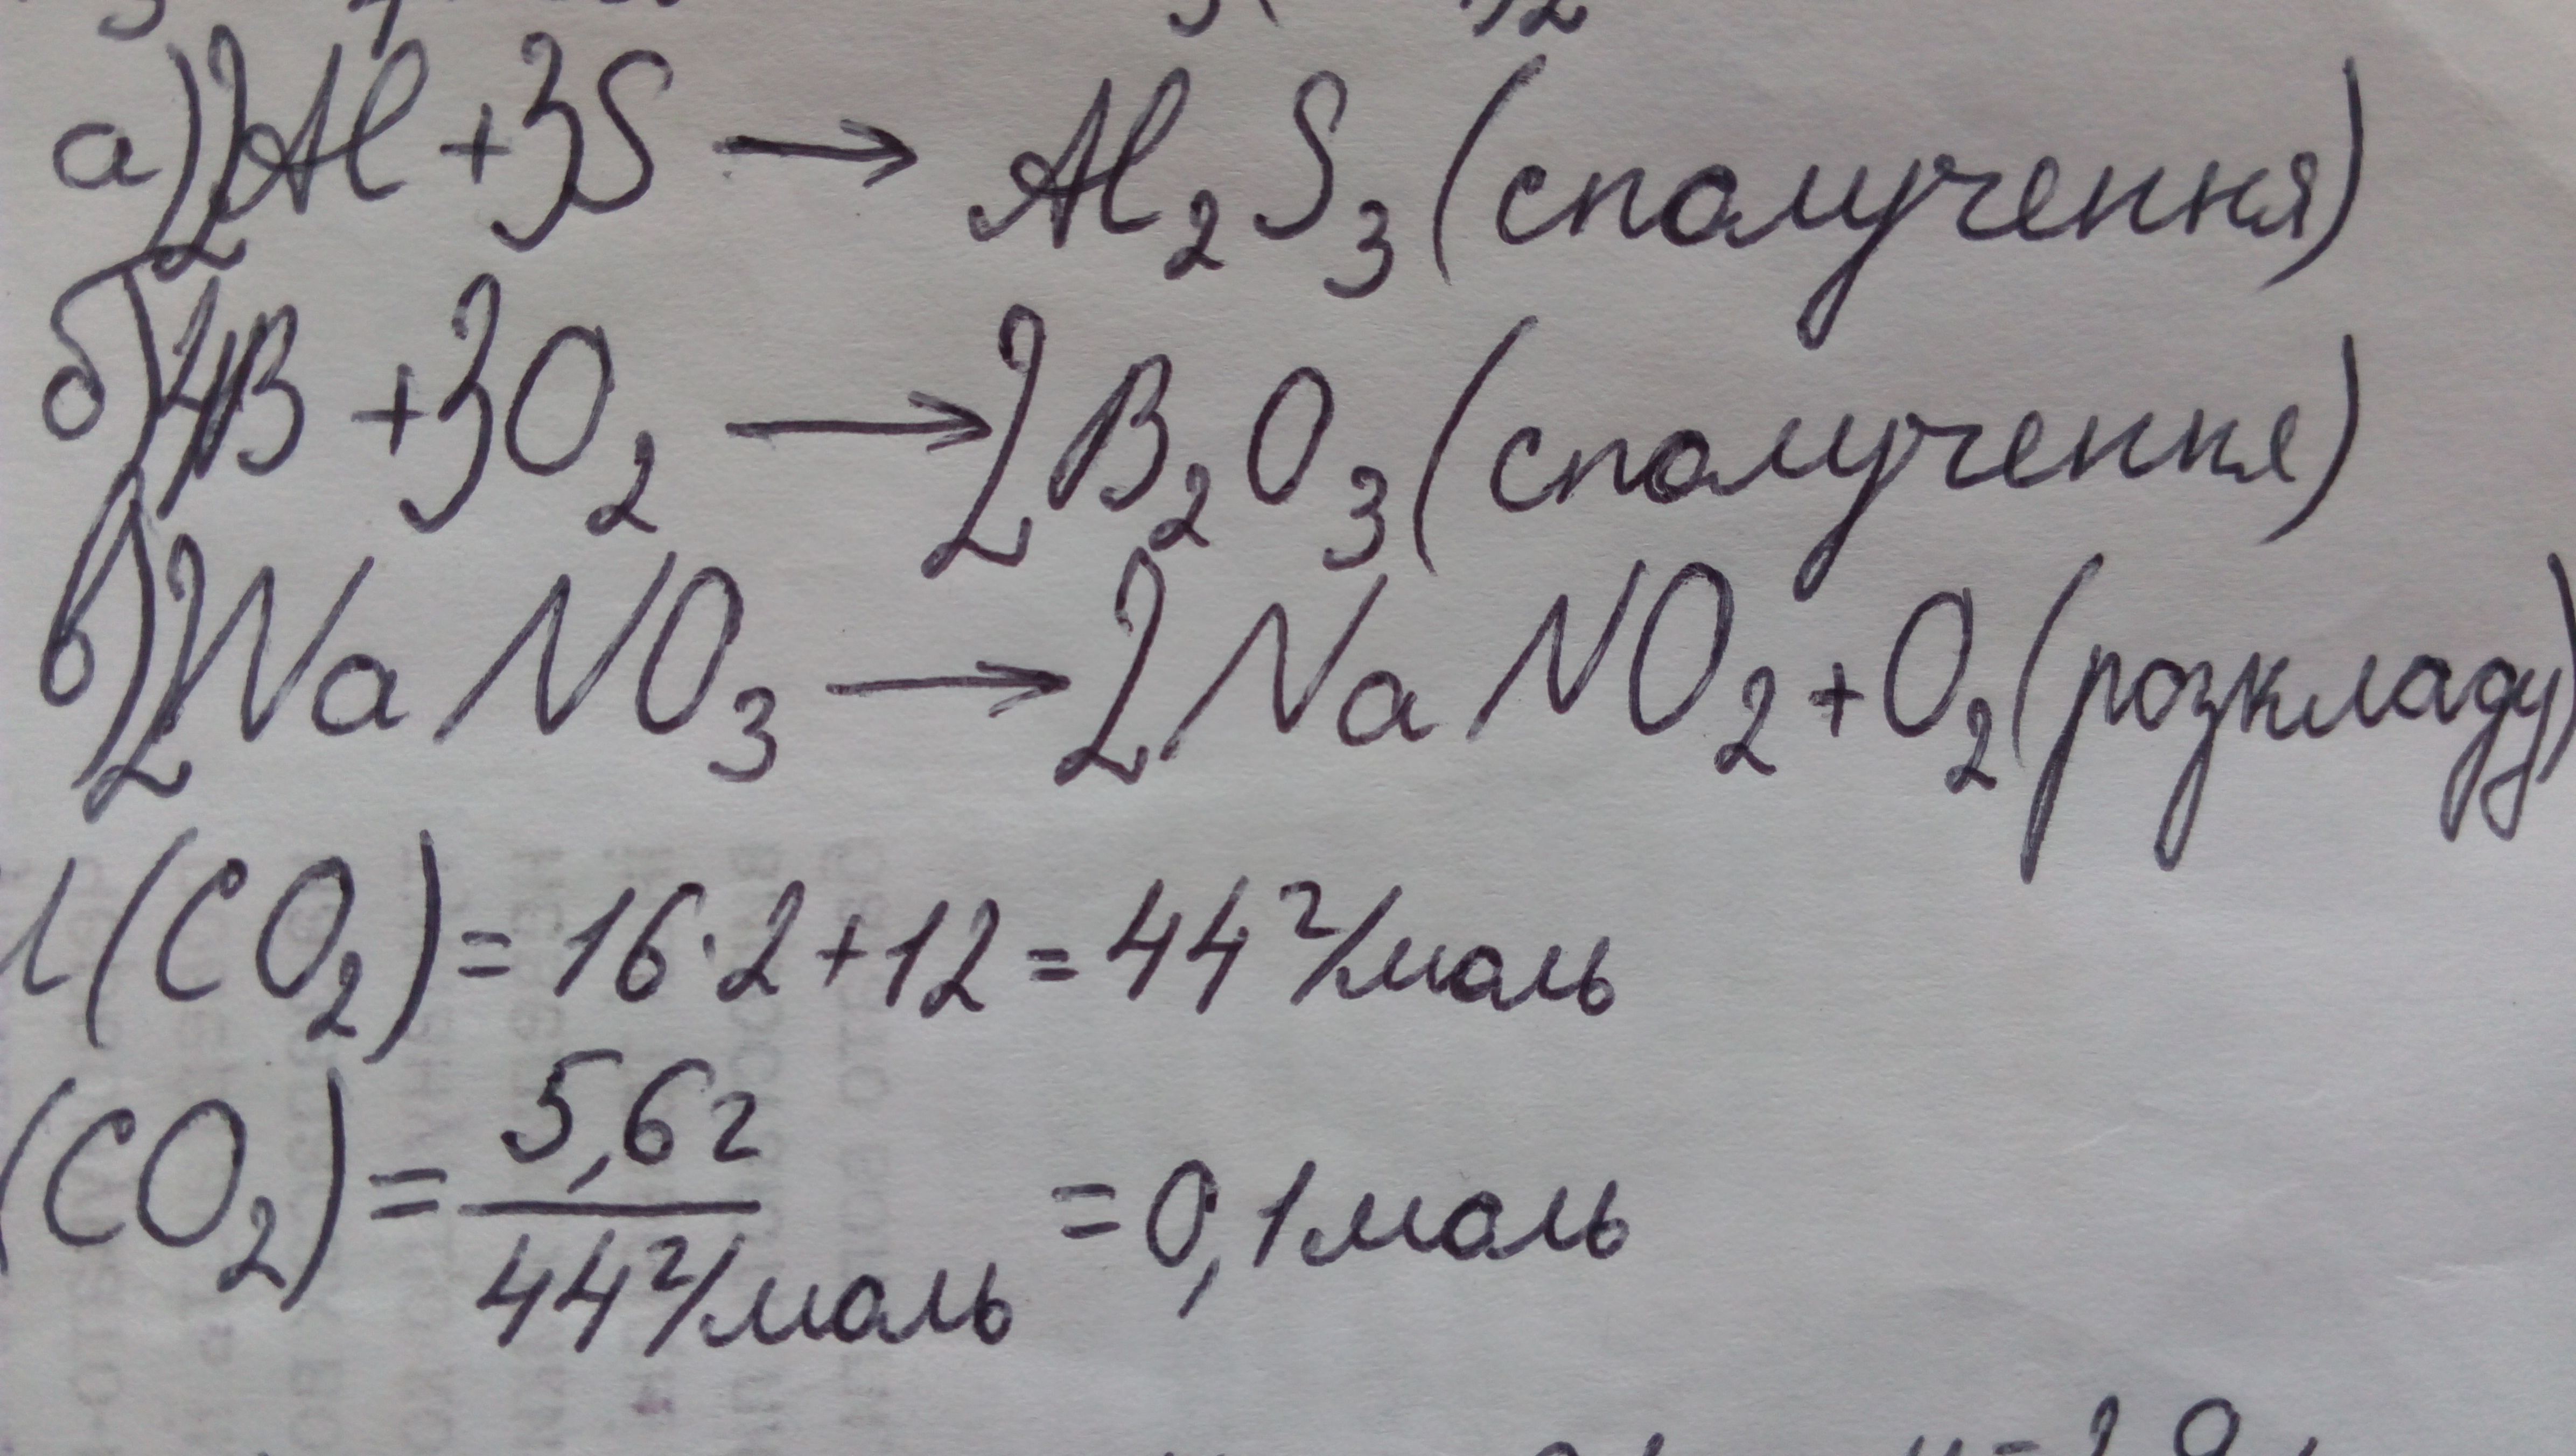 а) 2Al + 3S → Al₂S₃ (сполучення)
б) 4B + 3O₂ → 2B₂O₃ (сполучення)
в) 2NaNO₃ → 2NaNO₂ + O₂ (розкладу)
(CO₂) = 16·2+12 = 44 г/моль
(CO₂) = 5,6г / 44 г/моль = 0,1моль